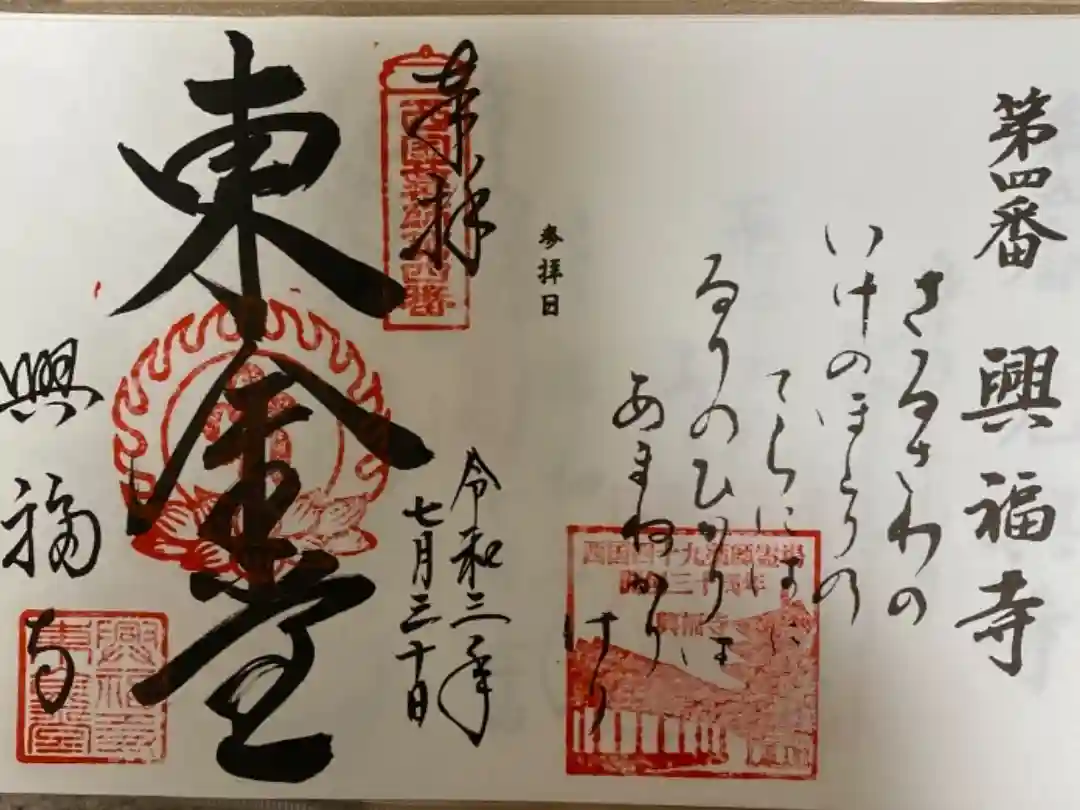 第四番 興福寺
さるさわの
いけのほとりの
てらにはに
るりのひかりは
あまねかりけり
西国四十九薬師霊場
開創三十周年
興福寺
参拝日
奉拝
西國薬師第四番
令和三年
七月三十日
東金堂
興福寺